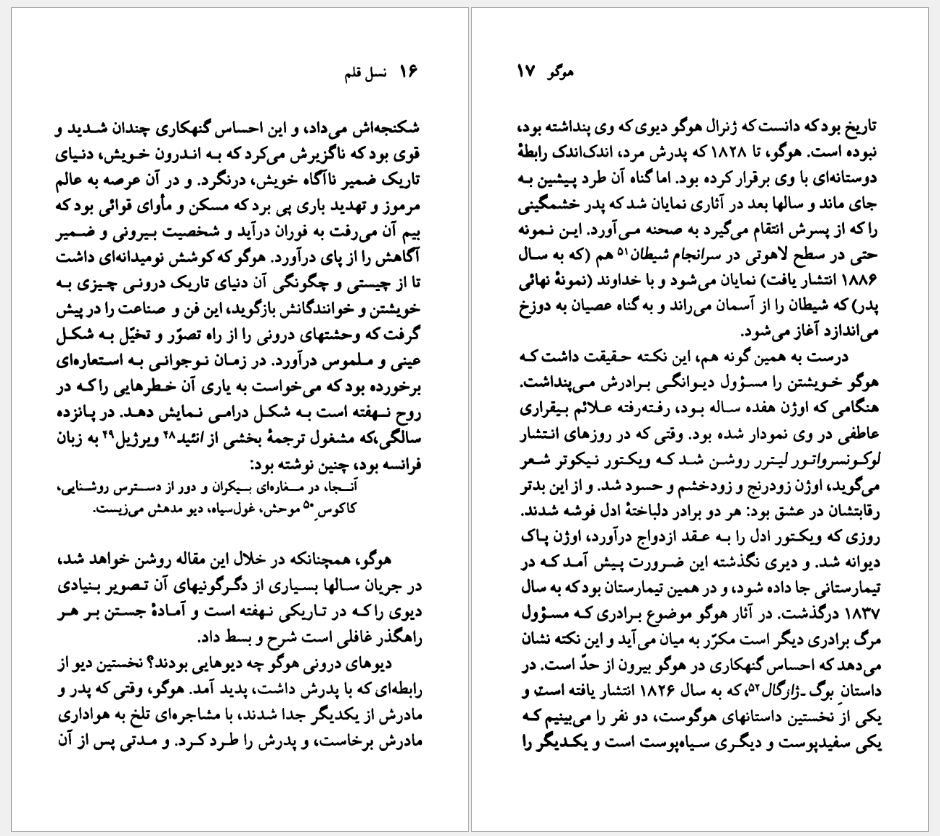 ۱۶ نسل قلم
شکنجه‌اش می‌داد، و این احساس گنهکاری چندان شدید و
قوی بود که ناگزیرش می‌کرد که به اندرون خویش، دنیای
تاریک ضمیر ناآگاه خویش، درنگرد. و در آن عرصه به عالم
مرموز و تهدید باری پی برد که مسکن و مأوای قوائی بود که
بیم آن می‌رفت به فوران درآید و شخصیت بیرونی و ضمیر
آگاهش را از پای درآورد. هوگو که کوشش نومیدانه‌ای داشت
تا از چیستی و چگونگی آن دنیای تاریک درونی چیزی به
خویشتن و خوانندگانش بازگوید، این فن و صناعت را در پیش
گرفت که وحشتهای درونی را از راه تصوّر و تخیّل به شکل
عینی و ملموس درآورد. در زمان نوجوانی به استعاره‌ای
برخورده بود که می‌خواست به یاری آن خطرهایی را که در
روح نهفته است به شکل درامی نمایش دهد. در پانزده
سالگی،که مشغول ترجمهٔ بخشی از انئید۴۸ ویرژیل۴۹ به زبان
فرانسه بود، چنین نوشته بود:
آنجا، در مغاره‌ای بیکران و دور از دسترس روشنایی،
کاکوس۵۰ موحش، غول‌سیاه، دیو مدهش می‌زیست.
هوگو، همچنانکه در خلال این مقاله روشن خواهد شد،
در جریان سالها بسیاری از دگرگونیهای آن تصویر بنیادی
دیوی را که در تاریکی نهفته است و آمادهٔ جستن بر هر
راهگذر غافلی است شرح و بسط داد.
دیوهای درونی هوگو چه دیوهایی بودند؟ نخستین دیو از
رابطه‌ای که با پدرش داشت، پدید آمد. هوگو، وقتی که پدر و
مادرش از یکدیگر جدا شدند، با مشاجره‌ای تلخ به هواداری
مادرش برخاست، و پدرش را طرد کرد. و مدتی پس از آن
هوگو ۱۷
تاریخ بود که دانست که ژنرال هوگو دیوی که وی پنداشته بود،
نبوده است. هوگو، تا ۱۸۲۸ که پدرش مرد، اندک‌اندک رابطهٔ
دوستانه‌ای با وی برقرار کرده بود. اما گناه آن طرد پیشین به
جای ماند و سالها بعد در آثاری نمایان شد که پدر خشمگینی
را که از پسرش انتقام می‌گیرد به صحنه می‌آورد. این نمونه
حتی در سطح لاهوتی در سرانجام شیطان۵۱ هم (که به سال
۱۸۸۶ انتشار یافت) نمایان می‌شود و با خداوند (نمونهٔ نهائی
پدر) که شیطان را از آسمان می‌راند و به گناه عصیان به دوزخ
می‌اندازد آغاز می‌شود.
درست به همین گونه هم، این نکته حقیقت داشت که
هوگو خویشتن را مسؤول دیوانگی برادرش می‌پنداشت.
هنگامی که اوژن هفده ساله بود، رفته‌رفته علائم بیقراری
عاطفی در وی نمودار شده بود. وقتی که در روزهای انتشار
لوکونسرواتور لیترر روشن شد که ویکتور نیکوتر شعر
می‌گوید، اوژن زودرنج و زودخشم و حسود شد. و از این بدتر
رقابتشان در عشق بود: هر دو برادر دلباختهٔ ادل فوشه شدند.
روزی که ویکتور ادل را به عقد ازدواج درآورد، اوژن پاک
دیوانه شد. و دیری نگذشته این ضرورت پیش آمد که در
تیمارستانی جا داده شود، و در همین تیمارستان بود که به سال
۱۸۳۷ درگذشت. در آثار هوگو موضوع برادری که مسؤول
مرگ برادری دیگر است مکرّر به میان می‌آید و این نکته نشان
می‌دهد که احساس گنهکاری در هوگو بیرون از حدّ است. در
داستانِ بوگ ـ ژارگال۵۲، که به سال ۱۸۲۶ انتشار یافته است و
یکی از نخستین داستانهای هوگوست، دو نفر را می‌بینیم که
یکی سفیدپوست و دیگری سیاه‌پوست است و یکدیگر را